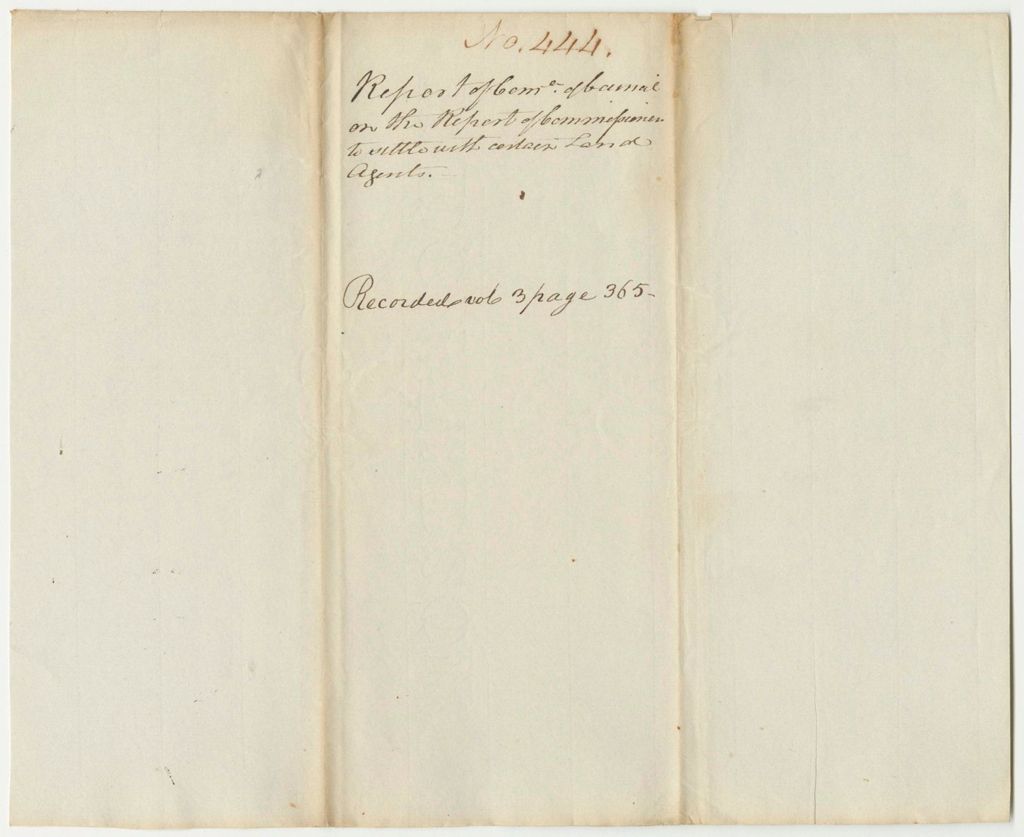 No. 444.
Report of Come. of Council
on the Report of Commissioners
to settle with certain Land
Agents.
Recorded vol 3 page 365-